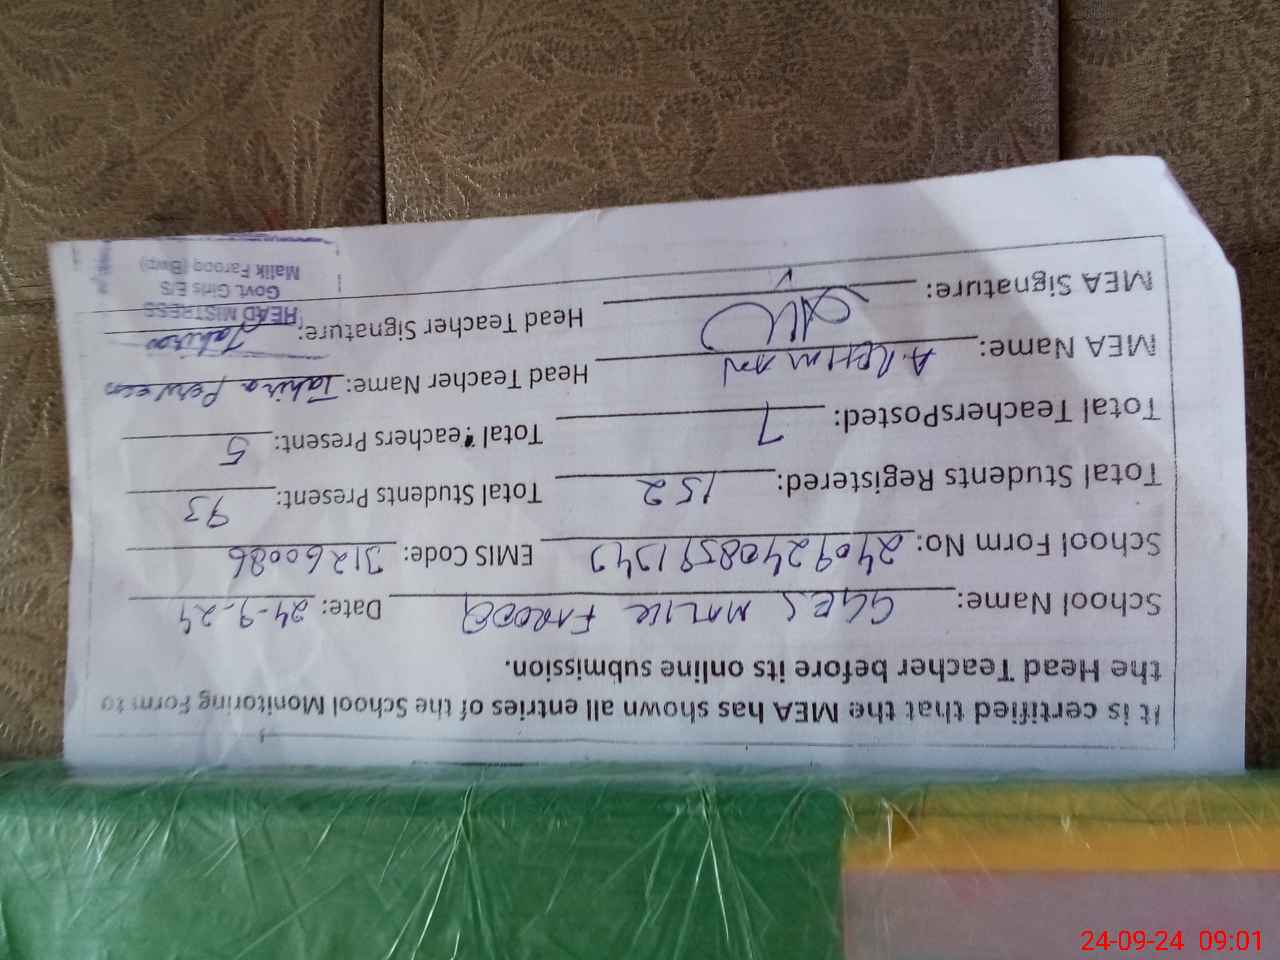 It is certified that the MEA has shown all entries of the School Monitoring Form to
the Head Teacher before its online submission.
School Name: GGES MALIK FAROOQ Date: 24-9-24
School Form No: 24092408591343 EMIS Code: 31260086
Total Students Registered: 152 Total Students Present: 93
Total TeachersPosted: 7 Total Teachers Present: 5
MEA Name: A.REHMAN Head Teacher Name: Tahira Perveen
MEA Signature: Head Teacher Signature: Tahira
HEAD MISTRESS
Govt. Girls E/S
Malik Farooq (Bwp)
24-09-24 09:01